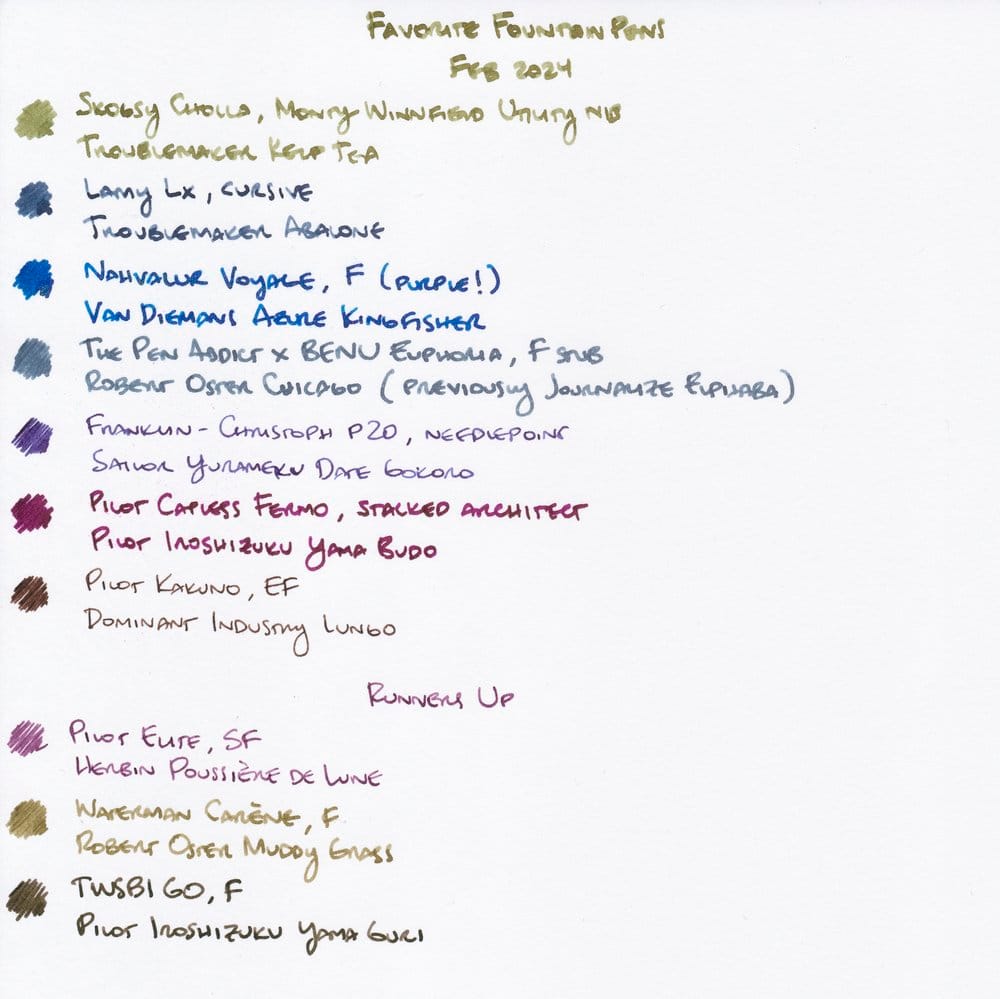 Favorite Fountain Pens
Feb 2024
Skogsy Cholla, Monty Winnfield Utility nib
Troublemaker Kelp Tea
Lamy Lx, cursive
Troublemaker Abalone
Nahvalur Voyage, F (purple!)
Van Diemans Azure Kingfisher
The Pen Addict x BENU Euphoria, F stub
Robert Oster Chicago (previously Journalize Elphaba)
Franklin-Christoph P20, needlepoint
Sailor Yurameku Date Gokoro
Pilot Capless Fermo, stacked architect
Pilot Iroshizuku Yama Budo
Pilot Kakuno, EF
Dominant Industry Lungo
Runners Up
Pilot Elite, SF
Herbin Poussière de Lune
Waterman Carène, F
Robert Oster Muddy Grass
TWSBI GO, F
Pilot Iroshizuku Yama Guri